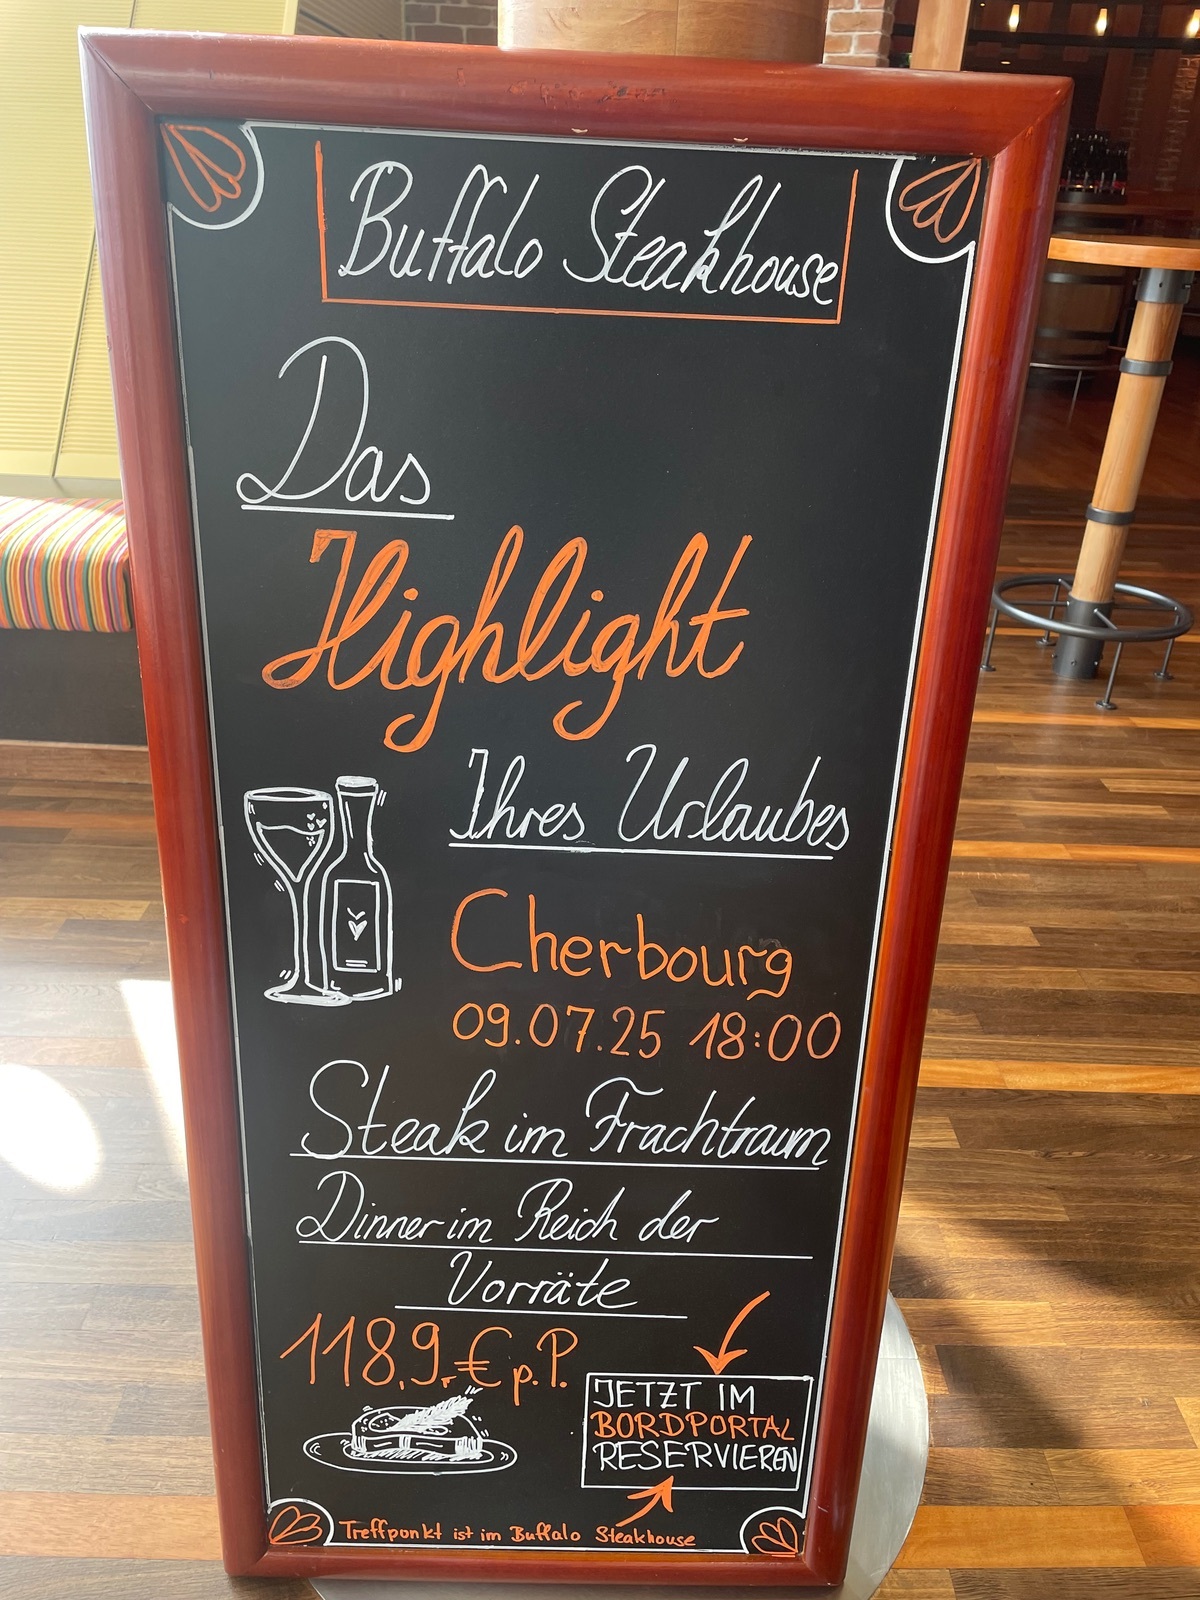 Buffalo Steakhouse
Das
Highlight
Ihres Urlaubes
Cherbourg
09.07.25 18:00
Steak im Frachtraum
Dinner im Reich der
Vorräte
118,9,-€ p.P.
JETZT IM
BORDPORTAL
RESERVIEREN
Treffpunkt ist im Buffalo Steakhouse